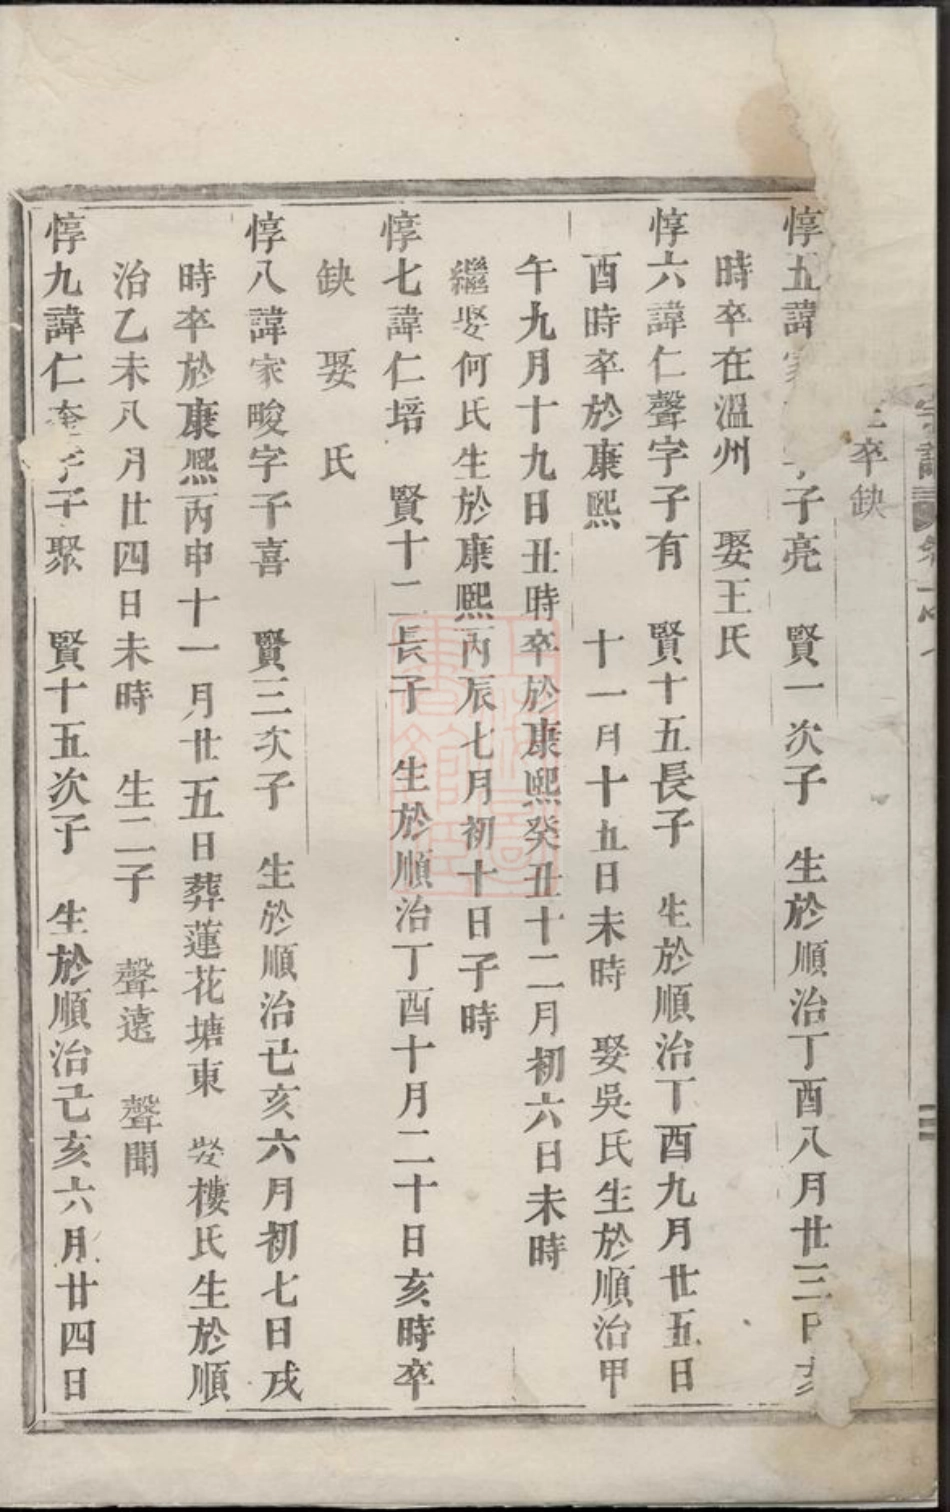 卒缺
惇五諱 子亮 賢一次子 生於順治丁酉八月廿三日亥
時卒在溫州 娶王氏
惇六諱仁聲字子有 賢十五長子 生於順治丁酉九月廿五日
酉時卒於康熙 十一月十五日未時 娶吳氏生於順治甲
午九月十九日丑時卒於康熙癸丑十二月初六日未時
繼娶何氏生於康熙丙辰七月初十日子時
惇七諱仁培 賢十二長子 生於順治丁酉十月二十日亥時卒
缺 娶 氏
惇八諱家畯字子喜 賢三次子 生於順治己亥六月初七日戌
時卒於康熙丙申十一月廿五日葬蓮花塘東 娶樓氏生於順
治乙未八月廿四日未時 生二子 聲遠 聲聞
惇九諱仁奎字子聚 賢十五次子 生於順治己亥六月廿四日